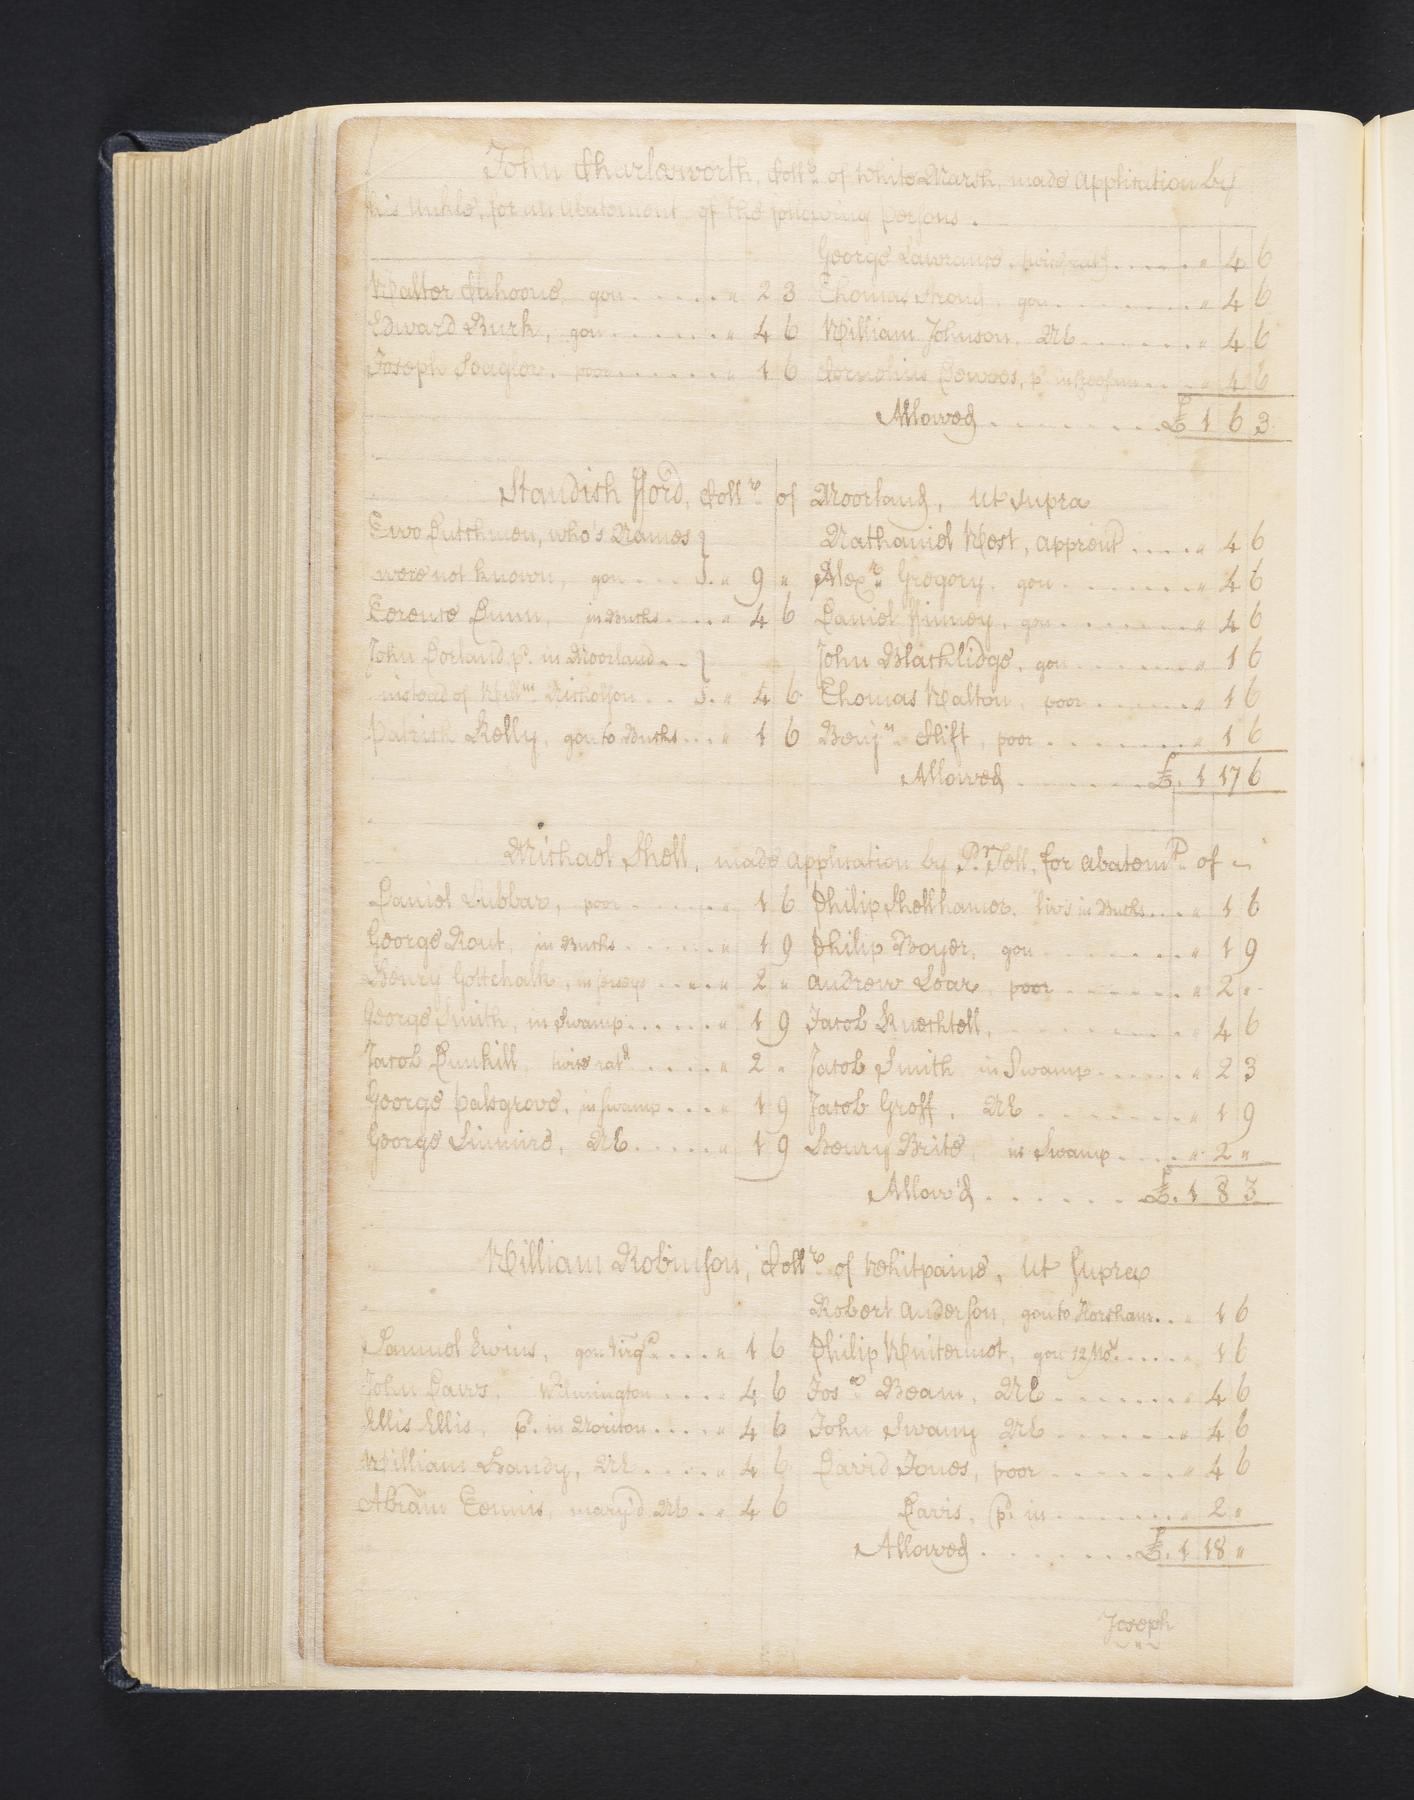 John Charlesworth, Coll.r of White Marsh, made application by
his Unkle, for an Abatement, of the following persons.
George Lawrance, twice rat'd " 4 6
Walter Cahoone, gon " 2 3
Thomas Stroud, gon " 4 6
Edward Burk, gon " 4 6
William Johnson, NE " 4 6
Joseph Seagler, poor " 1 6
Cornelius Dewees, p.d in " 4 6
Allowed £ 1 6 3
Standish fford, Coll.r of Moorland, ut supra
Two Dutchmen, who's Names
were not known, gon " 9 "
Nathaniel West, apprent " 4 6
Alex.r Gregory, gon " 4 6
Terence Dunn, in Bucks " 4 6
Daniel Kinney, gon " 4 6
John Dorland p.d in Moorland
instead of Will.m Nicholson " 4 6
John Blacklidge, gon " 1 6
Thomas Walton, poor " 1 6
Patrick Kelly, gon to Bucks " 1 6
Benj.n Clift, poor " 1 6
Allowed £. 1 17 6
Michael Shell, made application by P.r Jell, for abatem.t of
Daniel Lubbar, poor " 1 6
Philip Shellhamer, livs in Bucks " 1 6
George Rout, in Bucks " 1 9
Philip Boyer, gon " 1 9
Henry Gottchalk, in Jerseys " 2 "
Andrew Loar, poor " 2 "
George Smith, in Swamp " 1 9
Jacob Knechtell, " 4 6
Jacob Dunkill, twice rat'd " 2 "
Jacob Smith in Swamp " 2 3
George Palsgrove, in Swamp " 1 9
Jacob Groff, NE " 1 9
George Simmire, NE " 1 9
Henry Brite, in Swamp " 2 "
Allow'd £. 1 8 3
William Robinson, Coll.r of Whitpaine, ut supra
Robert Anderson, gon to Horsham " 1 6
Samuel Ewins, gon Virg.a " 1 6
Philip Wuitermot, gon 12 Mo.s " 1 6
John Daws, Wilmington " 4 6
Jos.h Beam, NE " 4 6
Ellis Ellis, p.d in Moriton " 4 6
John Swany NE " 4 6
William Handy, NE " 4 6
David Jones, poor " 4 6
Abram Tennis, mary'd NE " 4 6
Davis, p.d in " 2 "
Allowed £. 1 18 "
Joseph